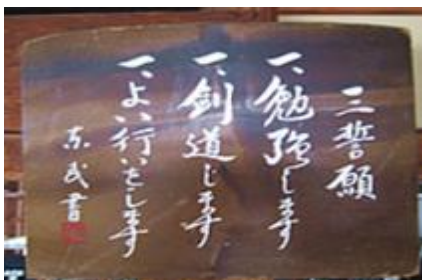 三誓願
一、勉強します
一、剣道します
一、よい行いをします